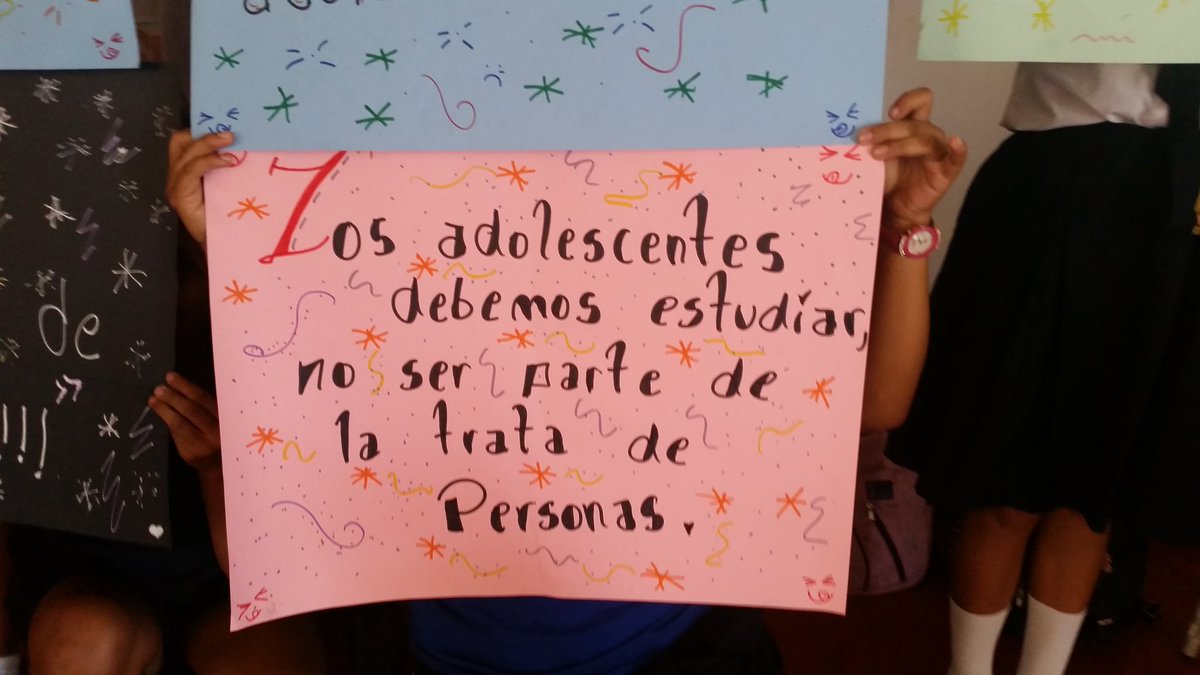 Los adolescentes
debemos estudiar,
no ser parte de
la trata de
Personas.
de
!!!